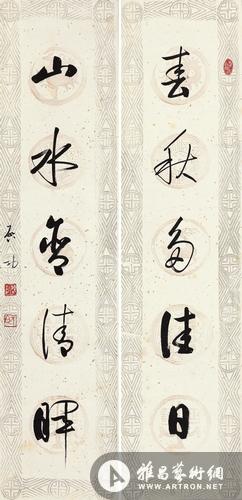 春秋多佳日
山水含清暉
启功
雅昌藝術網
WWW.ARTRON.NET